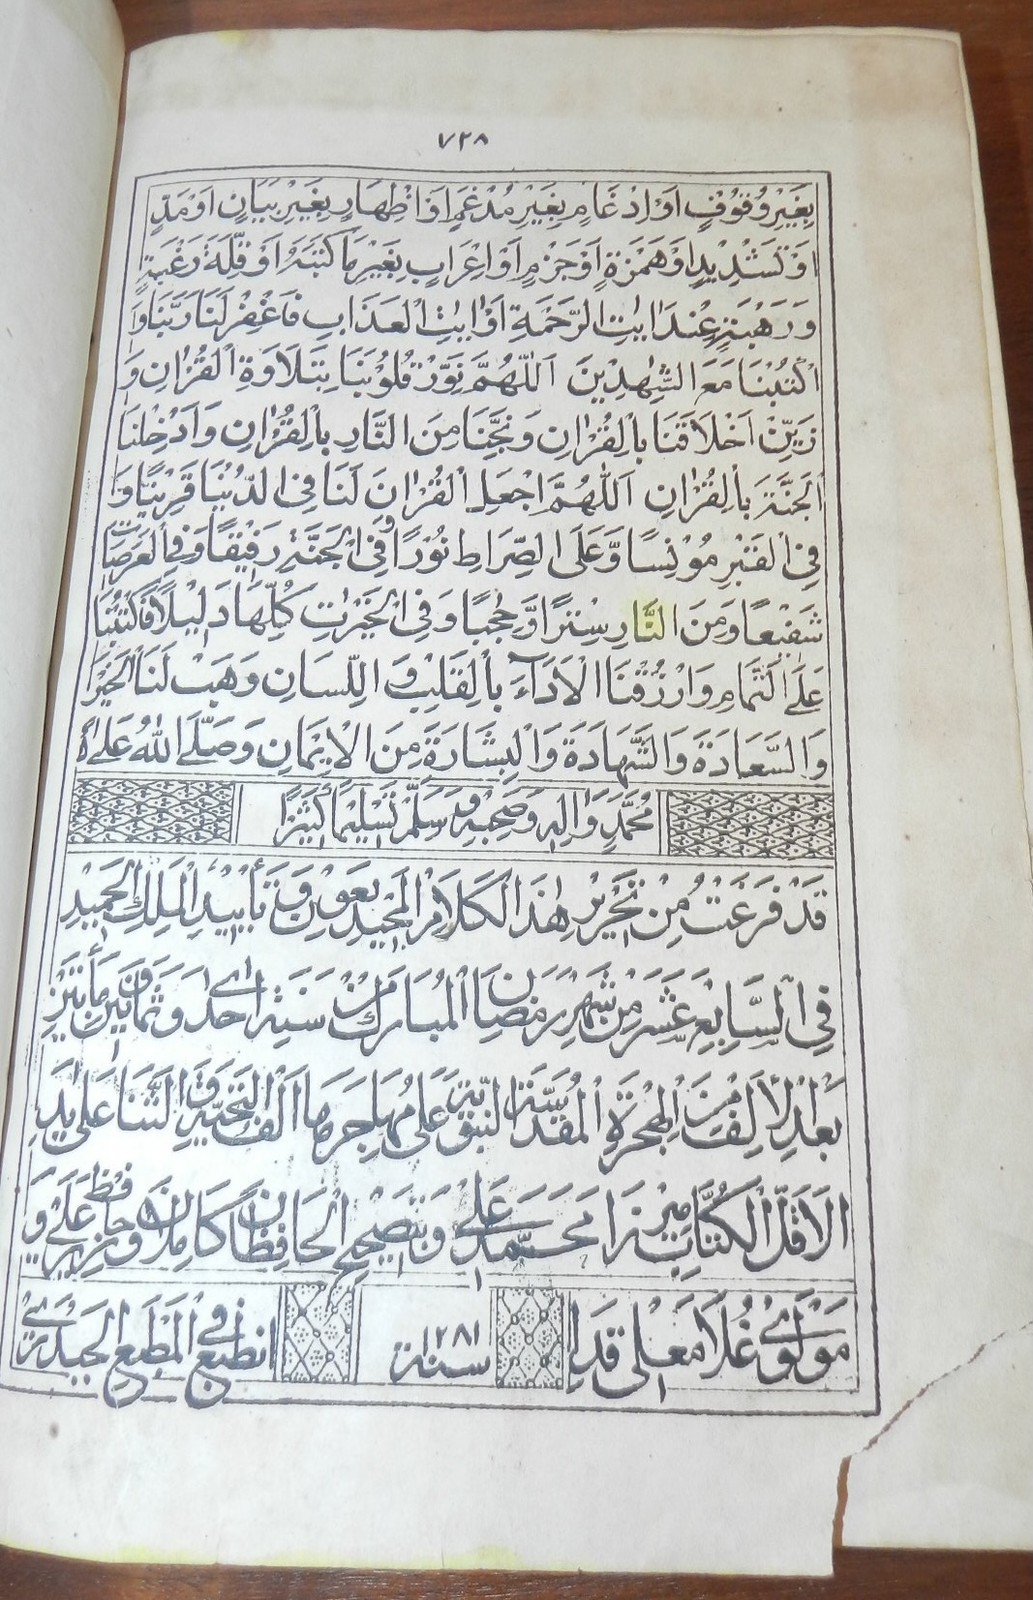 ٧٢٨
بِغَيْرِ وُقُوْفٍ اَوْ اِدْغَامٍ بِغَيْرِ مُدْغَمٍ اَوْ اِظْهَارٍ بِغَيْرِ بَيَانٍ اَوْ مَدٍّ
اَوْ تَشْدِيْدٍ اَوْ هَمْزَةٍ اَوْ جَزْمٍ اَوْ اِعْرَابٍ بِغَيْرِ مَا كَتَبَهُ اَوْ قِلَّةَ رَغْبَةٍ
وَرَهْبَةٍ عِنْدَ اٰيٰتِ الرَّحْمَةِ اَوْ اٰيٰتِ الْعَذَابِ فَاغْفِرْ لَنَا رَبَّنَا وَا
كْتُبْنَا مَعَ الشّٰهِدِيْنَ اَللّٰهُمَّ نَوِّرْ قُلُوْبَنَا بِتِلَاوَةِ الْقُرْاٰنِ وَ
زَيِّنْ اَخْلَاقَنَا بِالْقُرْاٰنِ وَنَجِّنَا مِنَ النَّارِ بِالْقُرْاٰنِ وَاَدْخِلْنَا
الْجَنَّةَ بِالْقُرْاٰنِ اَللّٰهُمَّ اجْعَلِ الْقُرْاٰنَ لَنَا فِى الدُّنْيَا قَرِيْنًا وَ
فِى الْقَبْرِ مُوْنِسًا وَّعَلَى الصِّرَاطِ نُوْرًا وَّفِى الْجَنَّةِ رَفِيْقًا وَفِى الْعَرَصَاتِ
شَفِيْعًا وَمِنَ النَّارِ سِتْرًا وَّحُجُبًا وَفِى الْخَيْرٰتِ كُلِّهَا دَلِيْلًا فَاكْتُبْنَا
عَلَى التَّمَامِ وَارْزُقْنَا الْاَدَآءَ بِالْقَلْبِ وَ اللِّسَانِ وَهَبْ لَنَا الْخَيْرَ
وَالسَّعَادَةَ وَالشَّهَادَةَ وَالْبِشَارَةَ مِنَ الْاِيْمَانِ وَصَلَّى اللهُ عَلٰى
مُحَمَّدٍ وَّاٰلِهٖ وَصَحْبِهٖ وَسَلَّمَ تَسْلِيْمًا كَثِيْرًا
قَدْ فَرَغْتُ مِنْ تَحْرِيْرِ هٰذَا الْكَلَامِ الْمَجِيْدِ بِعَوْنِ وَتَأْيِيْدِ الْمَلِكِ الْحَمِيْدِ
فِى السَّابِعِ عَشَرَ مِنْ شَهْرِ رَمَضَانَ الْمُبَارَكِ مِنْ سَنَةِ اِحْدٰى وَثَمَانِيْنَ وَمِأَتَيْنِ
بَعْدَ الْاَلْفِ مِنَ الْهِجْرَةِ الْمُقَدَّسَةِ النَّبَوِيَّةِ عَلٰى مُهَاجِرِهَا اَلْفُ التَّحِيَّةِ وَ الثَّنَا عَلٰى يَدِ
الْاَقَلِّ الْكُتَّابِ مِيْرْزَا مُحَمَّد عَلِى وَتَصْحِيْحِ الْحَافِظَانِ كَامِلَانِ حَافِظ عَلِى وَ
مَوْلَوِى غُلَامْ عَلِى قَدْ سنة ١٢٨١ انْطَبَعَ فِى الْمَطْبَعِ الْحَيْدَرِى